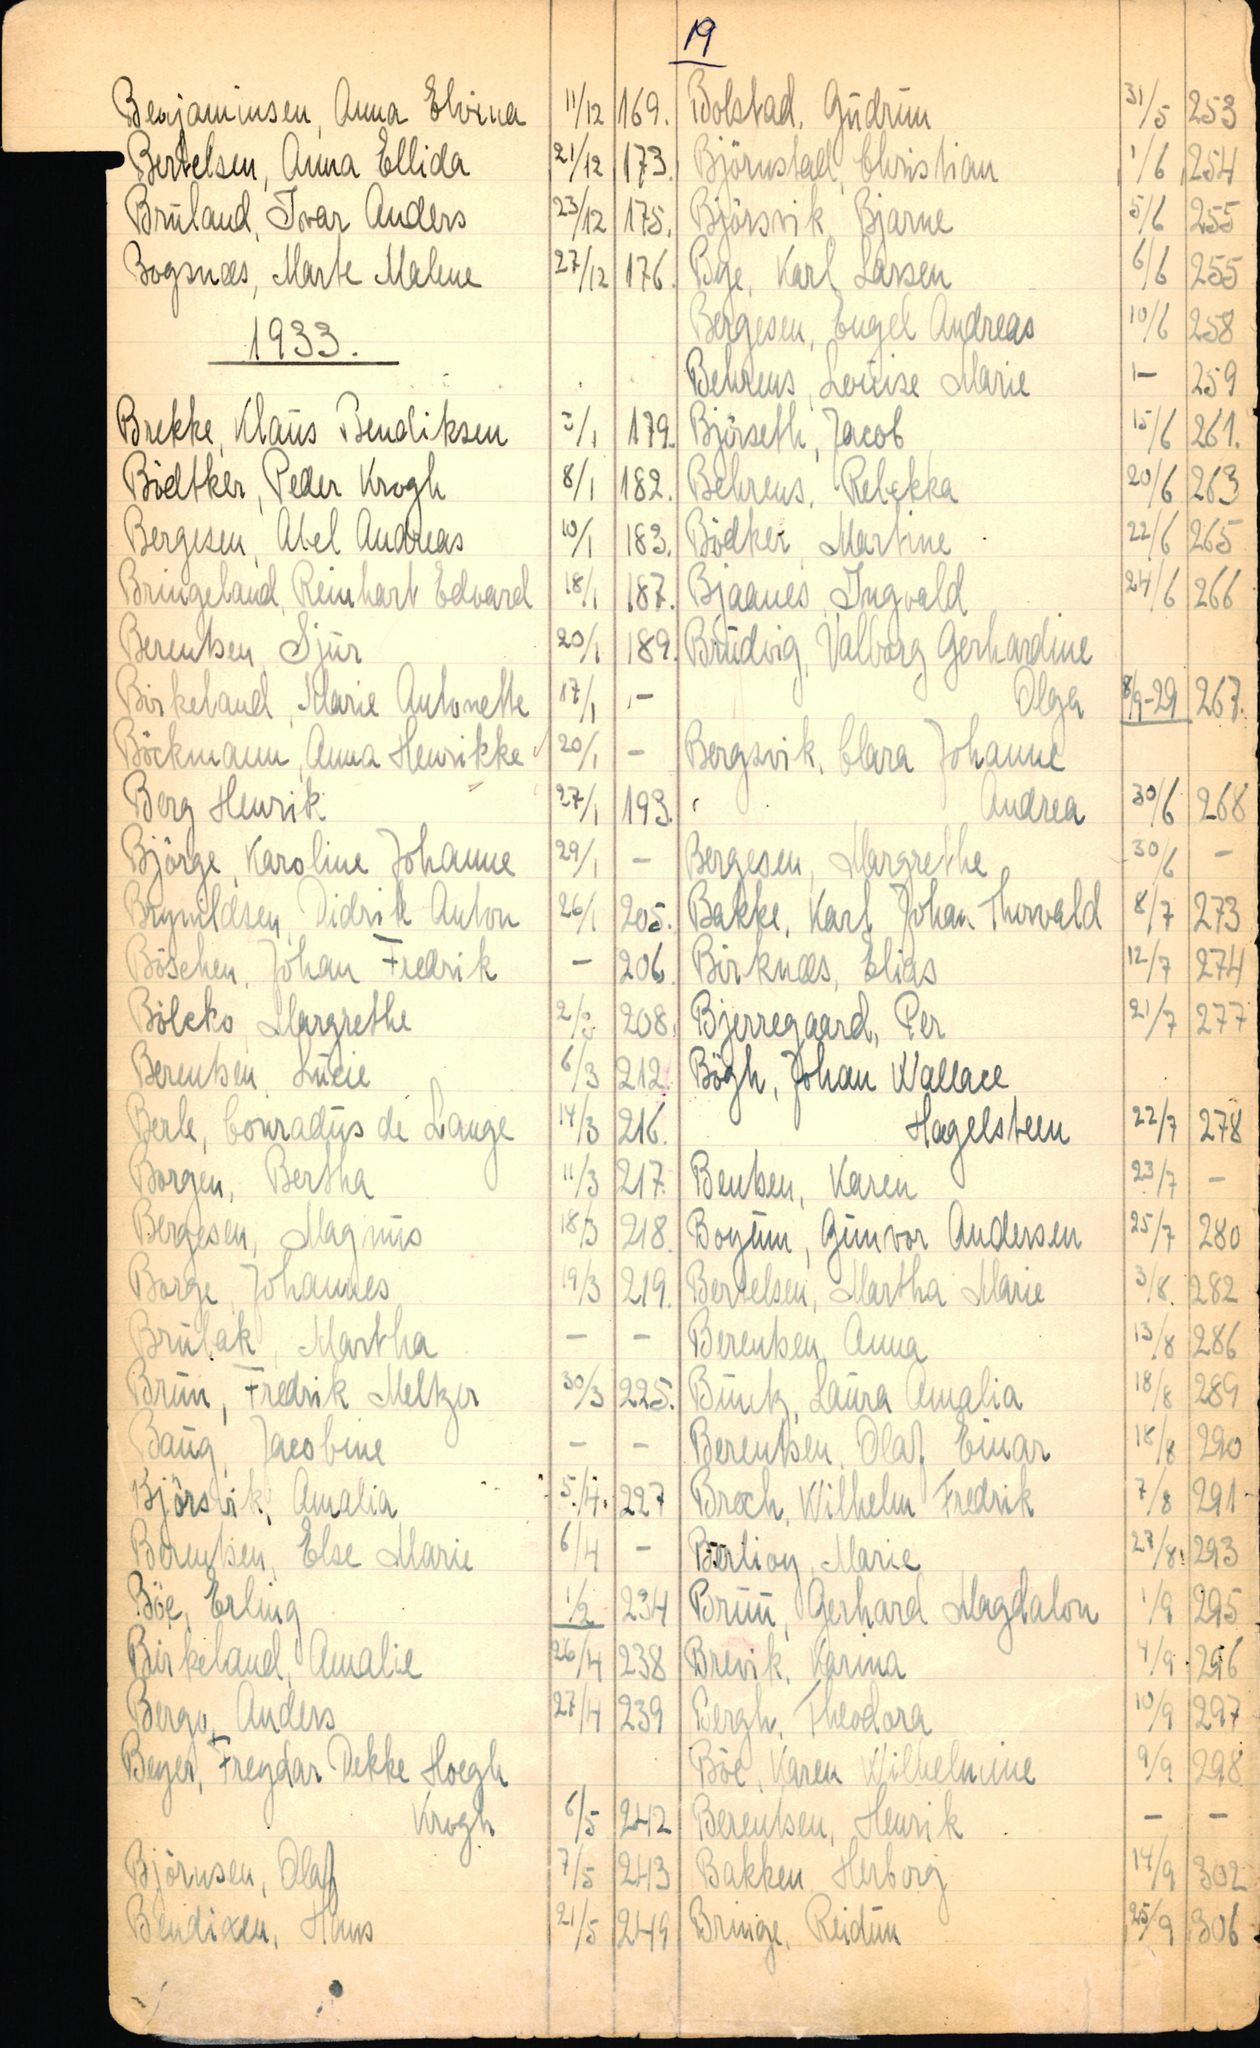 19
Benjaminsen, Anna Elvina 11/12 169.
Bertelsen, Anna Ellida 21/12 173.
Bruland, Ivar Anders 23/12 175.
Bogsnæs, Marte Malene 27/12 176.
1933.
Brekke, Klaus Bendiksen 179.
Bödtker, Peder Krogh 8/1 182.
Bergesen, Abel Andreas 10/1 183.
Bringeland, Reinhart Edvard 18/1 187.
Berentsen, Sjur 20/1 189.
Birkeland, Marie Antonette 17/1 -
Böckmann, Anna Henrikke 20/1 -
Berg Henrik 27/1 193.
Björge, Karoline Johanne 29/1 -
Brynildsen, Didrik Anton 26/1 205.
Böschen, Johan Fredrik - 206.
Böleko, Margrethe 208.
Berentsen, Lucie 6/3 212.
Berle, Conradus de Lange 14/3 216.
Borgen, Bertha 11/3 217.
Bergesen, Magnus 18/3 218.
Borge, Johannes 19/3 219.
Brulak, Martha - -
Brun, Fredrik Meltzer 30/3 225.
Baug, Jacobine - -
Björsvik, Amalia 5/4. 227
Berentsen, Else Marie 6/4 -
Böe, Erling 1/2 234
Birkeland, Amalie 26/4 238
Bergo, Anders 27/4 239
Beyer, Freydar Dekke Hoegh
Krogh 6/5 242
Björnsen, Olaf 7/5 243
Bendixen, Hans 21/5 249
Bolstad, Gudrun 31/5 253
Björnstad, Christian 1/6 254
Björsvik, Bjarne 5/6 255
Bge, Karl Larsen 6/6 255
Bergesen, Engel Andreas 10/6 258
Behrens, Louise Marie 1- 259
Björseth, Jacob 15/6 261.
Behrens, Rebekka 20/6 263
Bödker, Martine 22/6 265
Bjaanes, Ingvald 24/6 266
Brudvig, Valborg Gerhardine
Olga 8/9-29 267.
Bergsvik, Clara Johanne
Andrea 30/6 268
Bergesen, Margrethe 30/6 -
Bakke, Karl Johan Thorvald 8/7 273
Birknæs, Elias 12/7 274
Bjerregaard, Per 21/7 277
Bögh, Johan Wallace
Hagelsteen 22/7 278
Bentsen, Karen 23/7 -
Boyum, Gunvor Andersen 25/7 280
Bertelsen, Martha Marie 3/8. 282
Berentsen, Anna 13/8 286
Buntz, Laura Amalia 18/8 289
Berentsen, Olaf Einar 18/8 290
Broch, Wilhelm Fredrik 7/8 291
Marie 27/8. 293
Bruu, Gerhard Magdalon 1/9 295
Brevik, Karina 4/9 296
Bergh, Theodora 10/9 297
Böe, Karen Wilhelmine 9/9 298
Berentsen, Henrik - -
Bakken, Herborg 14/9 302
Bringe, Reidun 25/9 306